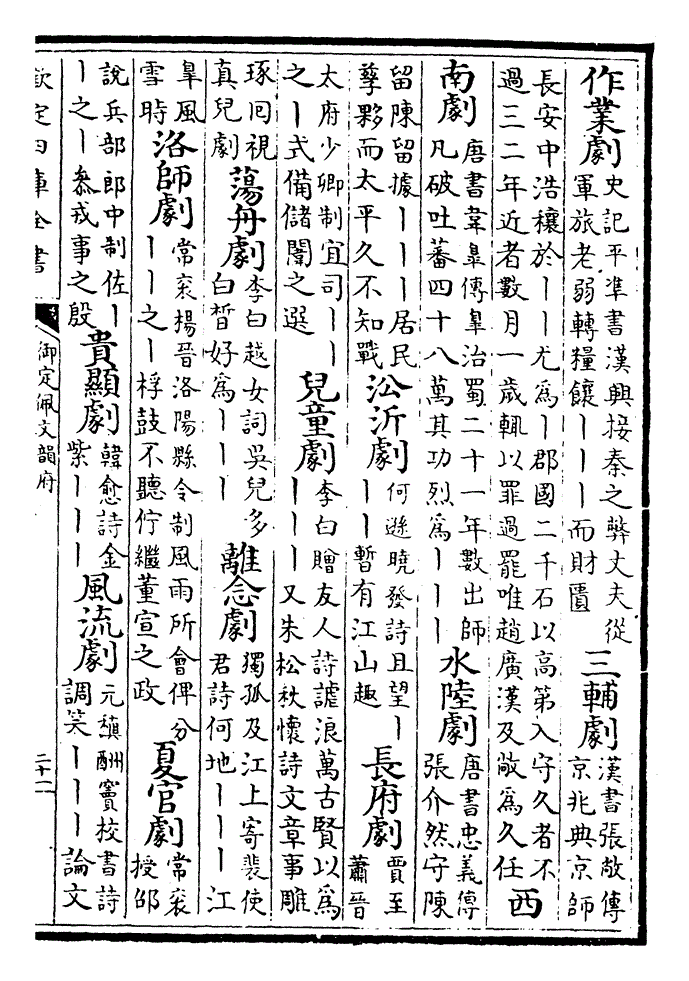 作業劇史記平準書漢興接秦之弊丈夫從軍旅老弱轉糧饟丨丨丨而財匱三輔劇漢書張敞傳京兆典京師
長安中浩穰於丨丨尤爲丨郡國二千石以高第入守久者不過三二年近者數月一歲輒以罪過罷唯趙廣漢及敞爲久任西
南劇唐書韋臯傳臯治蜀二十一年數出師凡破吐蕃四十八萬其功烈爲丨丨丨水陸劇唐書忠義傳張介然守陳
留陳留據丨丨丨居民孽夥而太平久不知戰㳂沂劇何遜曉發詩且望丨丨丨暫有江山趣長府劇賈至蕭晉
太府少卿制宜司丨丨之丨式備儲闈之選兒童劇李白贈友人詩謔浪萬古賢以爲丨丨丨又朱松秋懷詩文章事雕
琢囘視真兒劇蕩舟劇李白越女詞吳兒多白皙好爲丨丨丨離念劇獨孤及江上寄裴使君詩何地丨丨丨江
臯風雪時洛師劇常衮楊晉洛陽縣令制風雨所會俾分丨丨之丨桴鼓不聽佇繼董宣之政夏官劇常衮授邵
說兵部郎中制佐丨丨之丨叅戎事之殷貴顯劇韓愈詩金紫丨丨丨風流劇元稹酬竇校書詩調笑丨丨丨論文
欽定四庫全書 御定佩文韻府 二十二